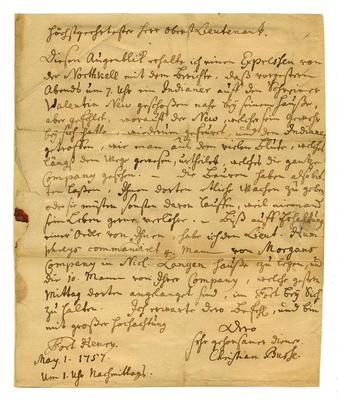 Höchstgeehrtester Herr Oberst Lieutenant.
Diesen Augenblick erhalte ich einen Expressen von
der Northkill mit dem Berichte, daß vorgestern
Abends um 7. Uhr ein Indianer auf den Schreiner
Valentin New geschoßen nahe bey seinem Hauße,
aber gefehlet, worauf der New, welcher sein Gewehr
bey sich hatte, wiederum gefeuert, und den Indianer
getroffen, wie man aus dem vielen Blute, welches
längst dem Wege gewesen, urtheilet, welches die gantze
Company gesehen. Die Bauren haben also bit-
ten laßen, Ihnen dorten Wachen zu geben
oder sie müsten sonsten davon lauffen, weil niemand
sein Leben gerne verlöhre. Biß auff
einer Ordre von Ihnen, habe ich dem Lieut. Hum-
phreys commandiret 4. Mann von Morgans
Company in Nicl. Langen Hauße zu legen, und
die 10. Mann von Dero Company, welche gestern
Mittag dorten angelanget sind, im Fort bey sich
zu halten. Ich erwarte Dero Befehl, und bin
mit großer Hochachtung
Dero
Fort Henry.
sehr gehorsamer Diener,
May. 1. 1757.
Christian Busse.
Um 1. Uhr Nachmittags.